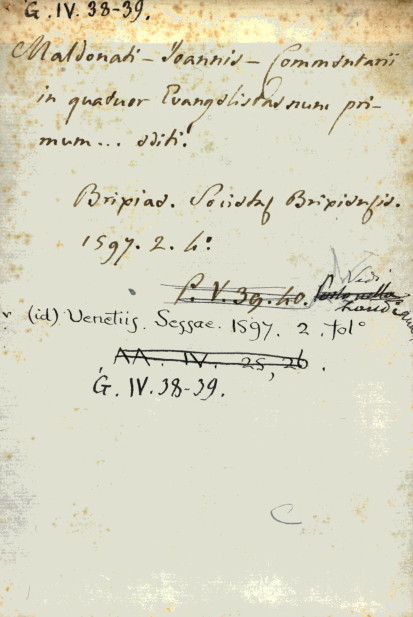 G. IV. 38-39.
Maldonati - Joannis - Commentarii
in quatuor Evangelistas nunc pri-
mum... editi.
Brixiae. Societas Brixiensis.
1597. 2. 4º.
P. V. 39. 40.
Vedi
(id) Venetiis. Sessae. 1597. 2. fol°
AA. IV. 25, 26.
G. IV. 38-39.